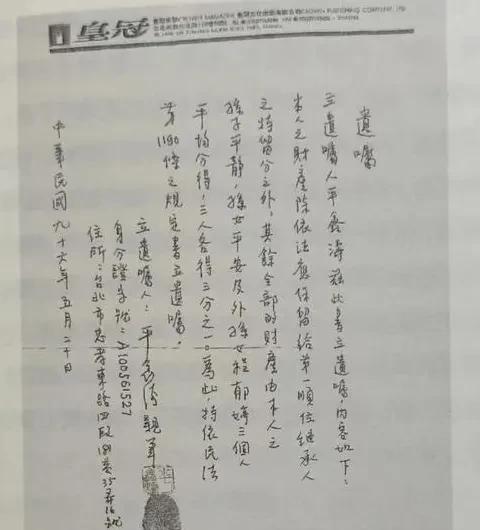 皇冠
遺囑
立遺囑人平鑫濤茲此書立遺囑，內容如下：
本人之財產除依法應保留給第一順位繼承人
之特留分之外，其餘全部的財產由本人之
孫子平靜，孫女平安及外孫女程郁婷三個人
平均分得，三人各得三分之一。為此，特依民法
第1190條之規定書立遺囑。
立遺囑人：平鑫濤親筆
身分證字號：A100561527
住所：台北市忠孝東路四段181巷35弄16號
中華民國九十六年五月二十日